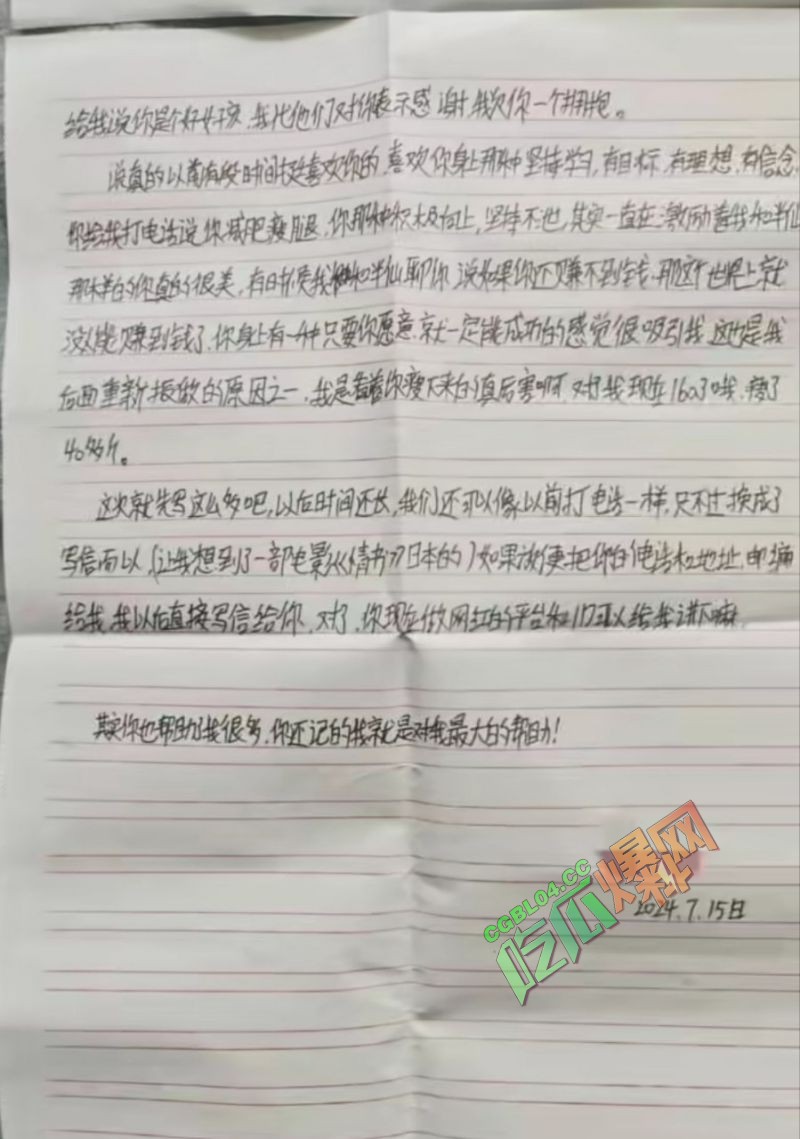 给我说你是个好女孩，我代他们对你表示感谢，我欠你一个拥抱。
说真的以前有段时间挺喜欢你的，喜欢你身上那种坚持学习，有目标，有理想，有信念，
你给我打电话说你减肥瘦腿，你那种积极向上，坚持不
其实一直在激励着我和半仙
那样的你真的很美，有时候我和半仙聊你，说如果你还赚不到钱，那这个世界上就
没人能赚到钱了，你身上有一种只要你愿意，就一定能成功的感觉很吸引我，这也是我
后面重新振作的原因之一，我是看着你瘦下来的真厉害啊，对了我现在160了哦，瘦了
40多斤。
这次就先写这么多吧，以后时间还长，我们还可以像以前打电话一样，只不过换成了
写信而以（让我想到了一部电影《情书》日本的）如果方便把你的电话和地址，邮编
给我，我以后直接写信给你，对了，你现在做网红的平台和ID可以给我讲下嘛
其实你也帮助了我很多，你还记的我就是对我最大的帮助！
CGBL04.CC
吃瓜爆网
2024.7.15日